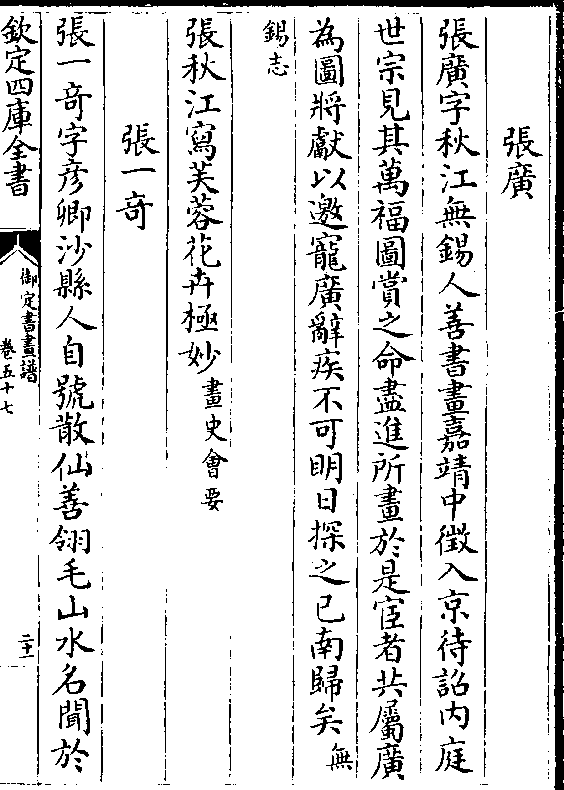 張廣
張廣字秋江無錫人善書畫嘉靖中徵入京待詔内庭
世宗見其萬福圖賞之命盡進所畫於是宦者共屬廣
為圖將獻以邀寵廣辭疾不可明日探之已南歸矣無
錫志
張秋江寫芙蓉花卉極妙畫史會要
張一奇
張一奇字彦卿沙縣人自號散仙善翎毛山水名聞於
欽定四庫全書
御定書畫譜
卷五十七
二十一